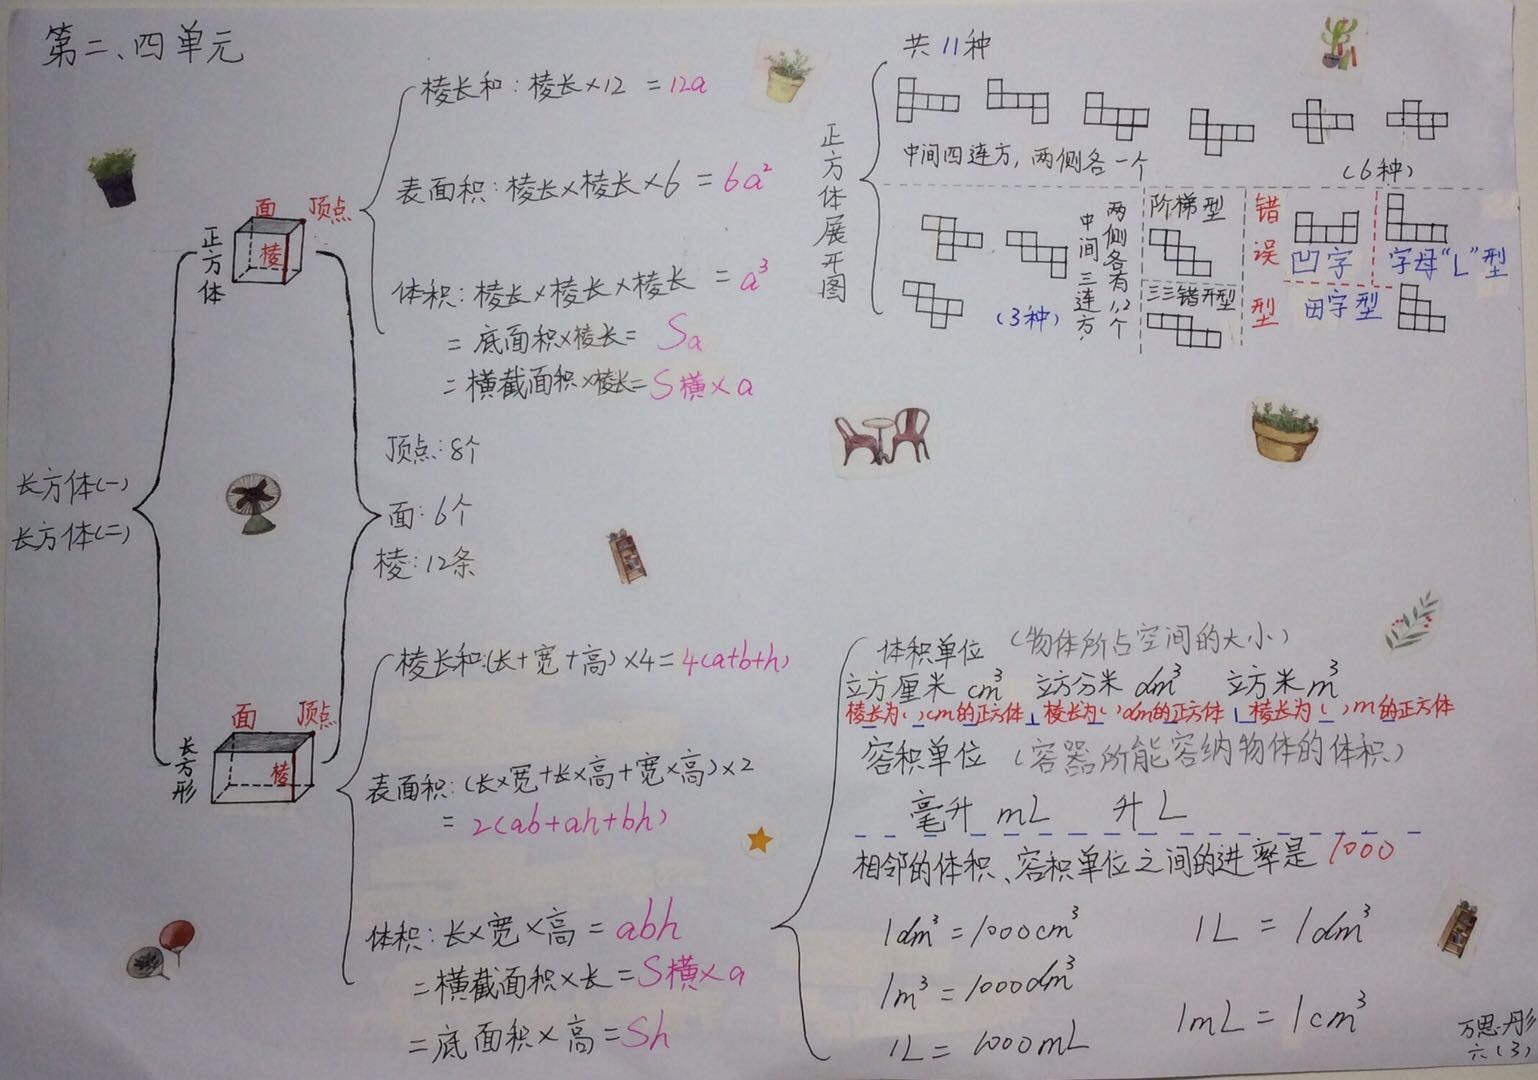 第二、四单元
长方体(一)
长方体(二)
正方体
面 顶点
棱
棱长和:棱长×12 =12a
表面积:棱长×棱长×6 =6a²
体积:棱长×棱长×棱长 =a³
=底面积×棱长= Sa
=横截面积×棱长=S横×a
顶点:8个
面:6个
棱:12条
长方形
面 顶点
棱
棱长和:(长+宽+高)×4=4(a+b+h)
表面积:(长×宽+长×高+宽×高)×2
=2(ab+ah+bh)
体积:长×宽×高=abh
=横截面积×长=S横×a
=底面积×高=Sh
正方体展开图
共11种
中间四连方,两侧各一个
(6种)
(3种)
中间三连方,
两侧各有1、2个
阶梯型
三三错开型
错误型
凹字
字母“L”型
田字型
体积单位(物体所占空间的大小)
立方厘米 cm³ 立方分米 dm³ 立方米 m³
棱长为( )cm的正方体 棱长为( )dm的正方体 棱长为( )m的正方体
容积单位(容器所能容纳物体的体积)
毫升 mL 升 L
相邻的体积、容积单位之间的进率是1000
1dm³=1000cm³ 1L=1dm³
1m³=1000dm³
1mL=1cm³
1L=1000mL
万思彤
六(3)